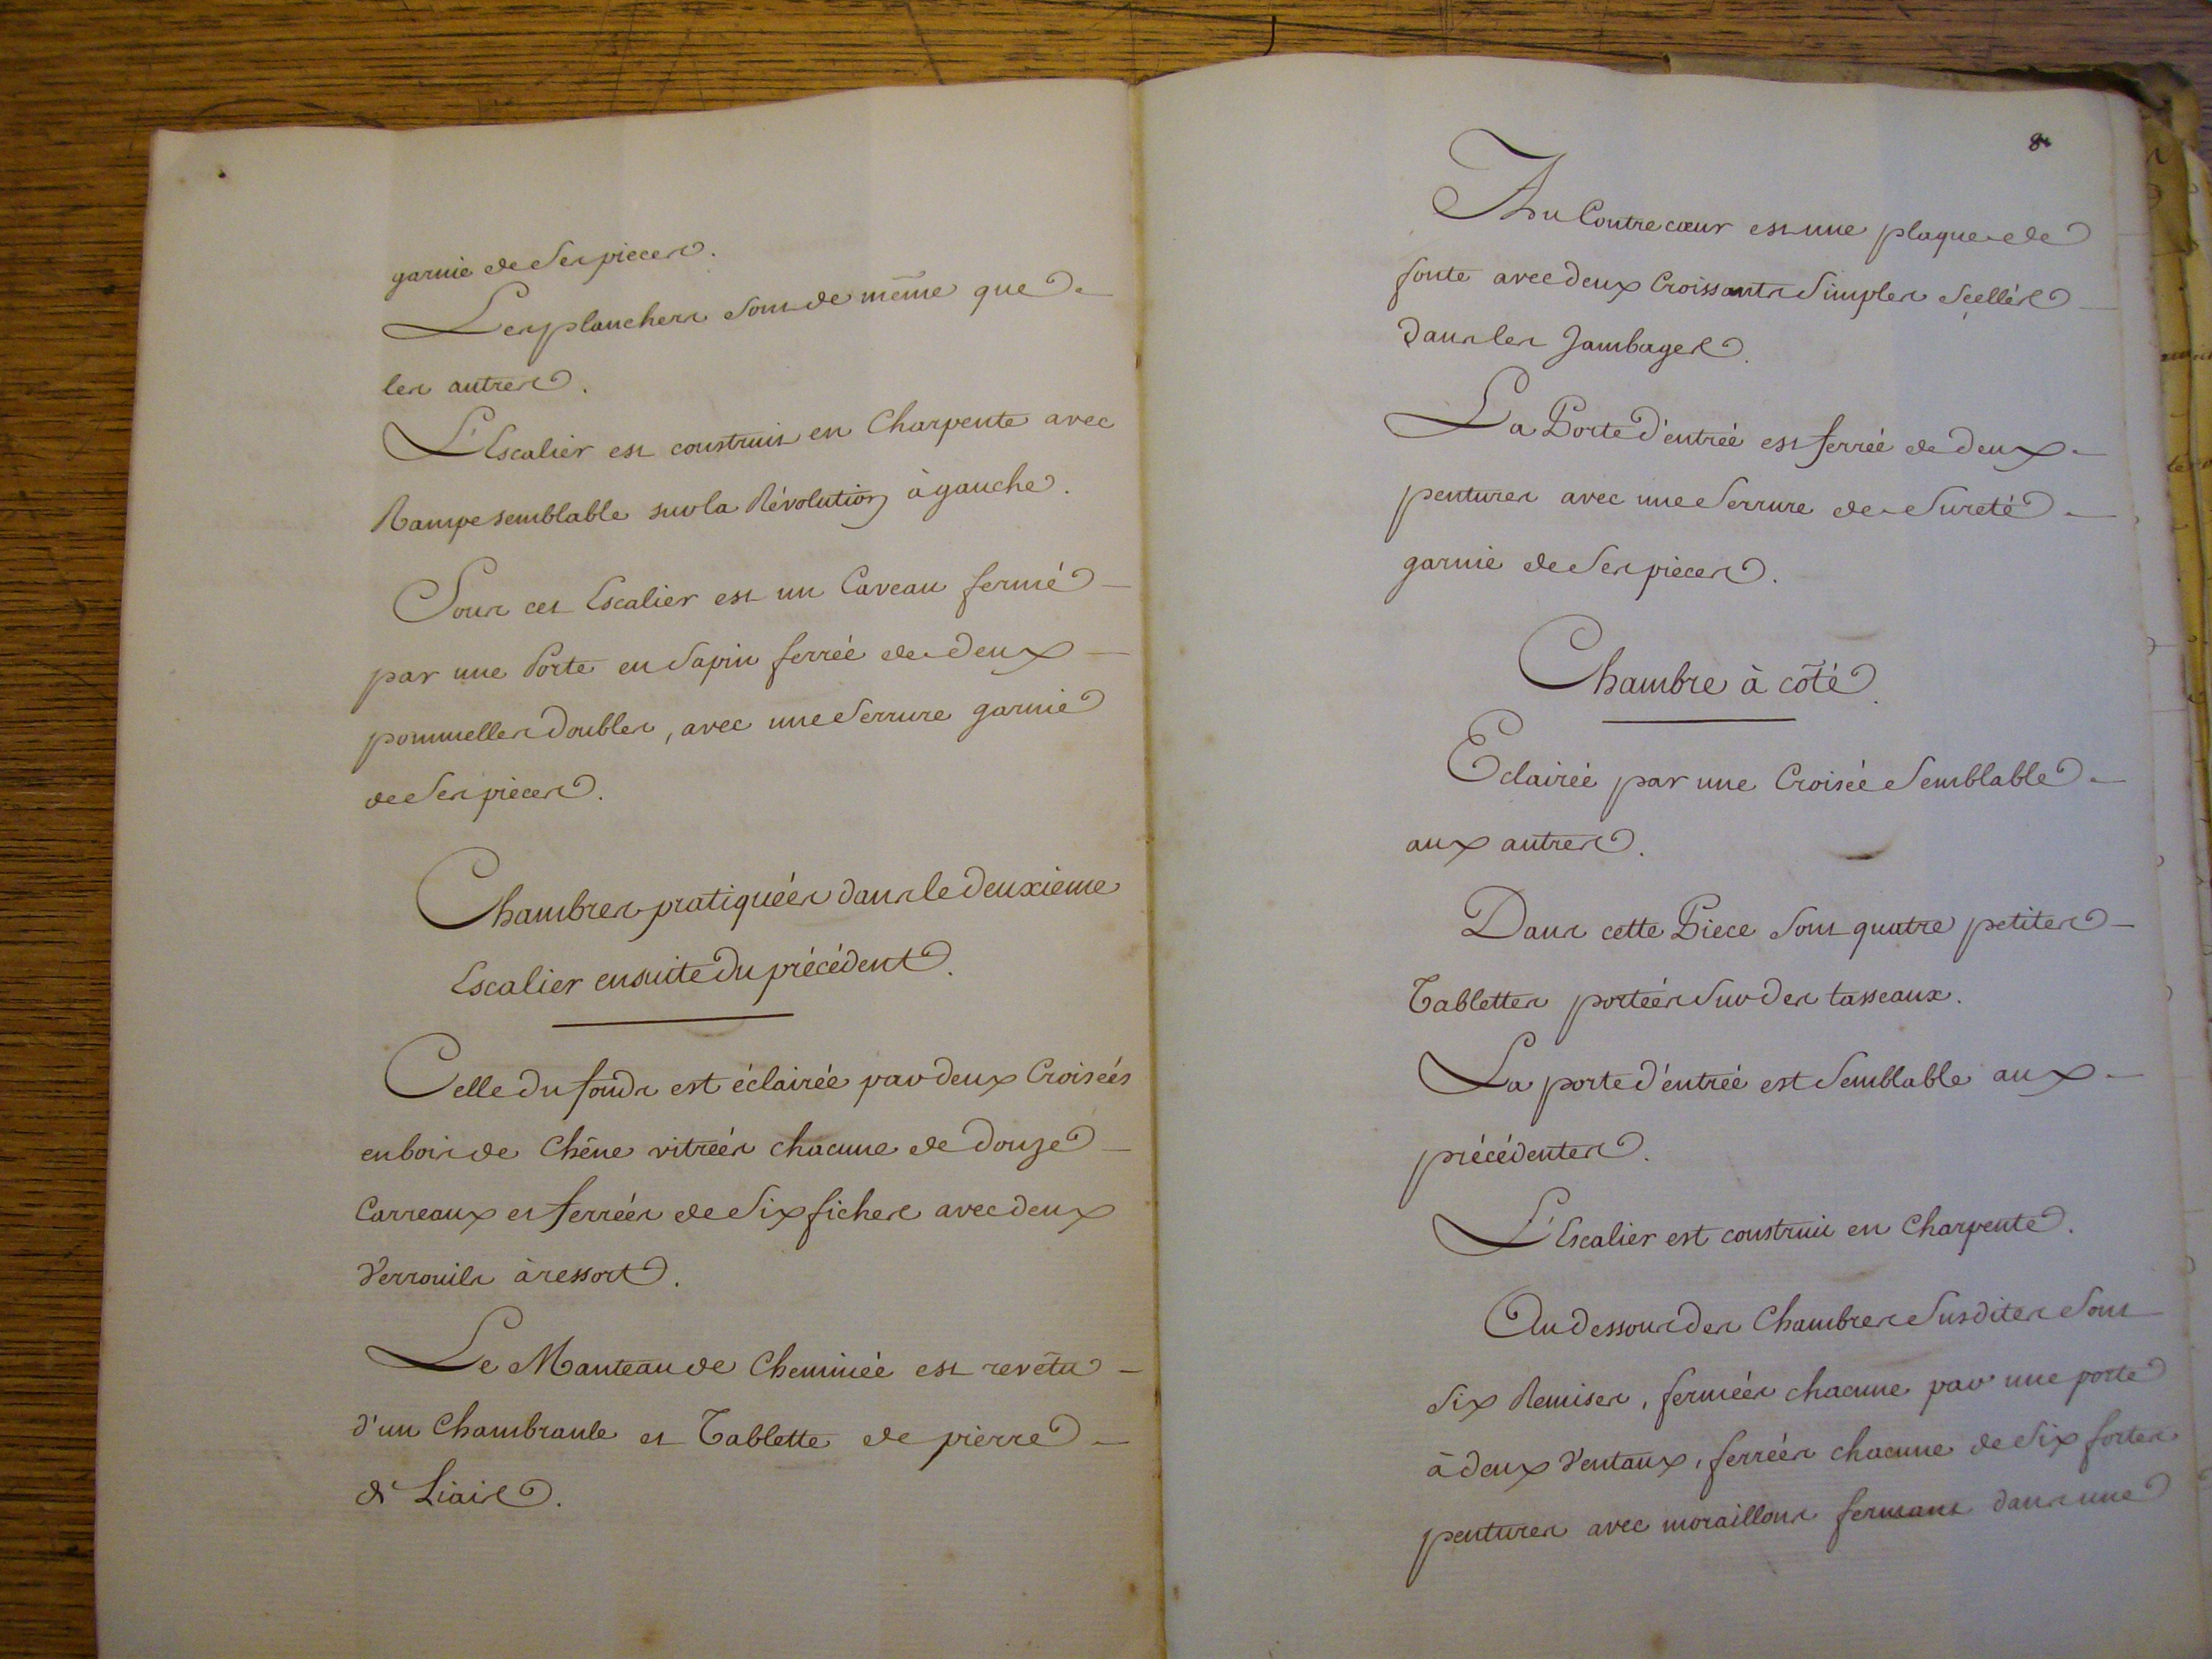 garnie de Ses pieces.
Les planchers Sont de même que
les autres.
L'Escalier est construit en Charpente avec
Rampe semblable sur la Révolution à gauche.
Sous cet Escalier est un Caveau fermé
par une Porte en Sapin ferrée de deux
pommelles doubles, avec une Serrure garnie
de Ses pieces.
Chambres pratiquées dans le deuxieme
Escalier ensuite du précédent.
Celle du fonds est éclairée par deux Croisées
en bois de Chêne vitrées chacune de douze
Carreaux et ferrées de Six fiches avec deux
Verrouils à ressort.
Le Manteau de Cheminée est revêtu
d'un Chambranle et Tablette de pierre
de Liais.
8
Au Contrecœur est une plaque de
fonte avec deux Croissants Simples Scellés
dans les Jambages.
La Porte d'entrée est ferrée de deux
pentures avec une Serrure de Sureté
garnie de Ses pieces.
Chambre à côté.
Eclairée par une Croisée Semblable
aux autres.
Dans cette Piece Sont quatre petites
Tablettes portées Sur des tasseaux.
La porte d'entrée est Semblable aux
précédentes.
L'Escalier est construit en Charpente.
Au dessous des Chambres Susdites Sont
Six Remises, fermées chacune par une porte
à deux Ventaux, ferrées chacune de Six fortes
pentures avec moraillons fermant dans une